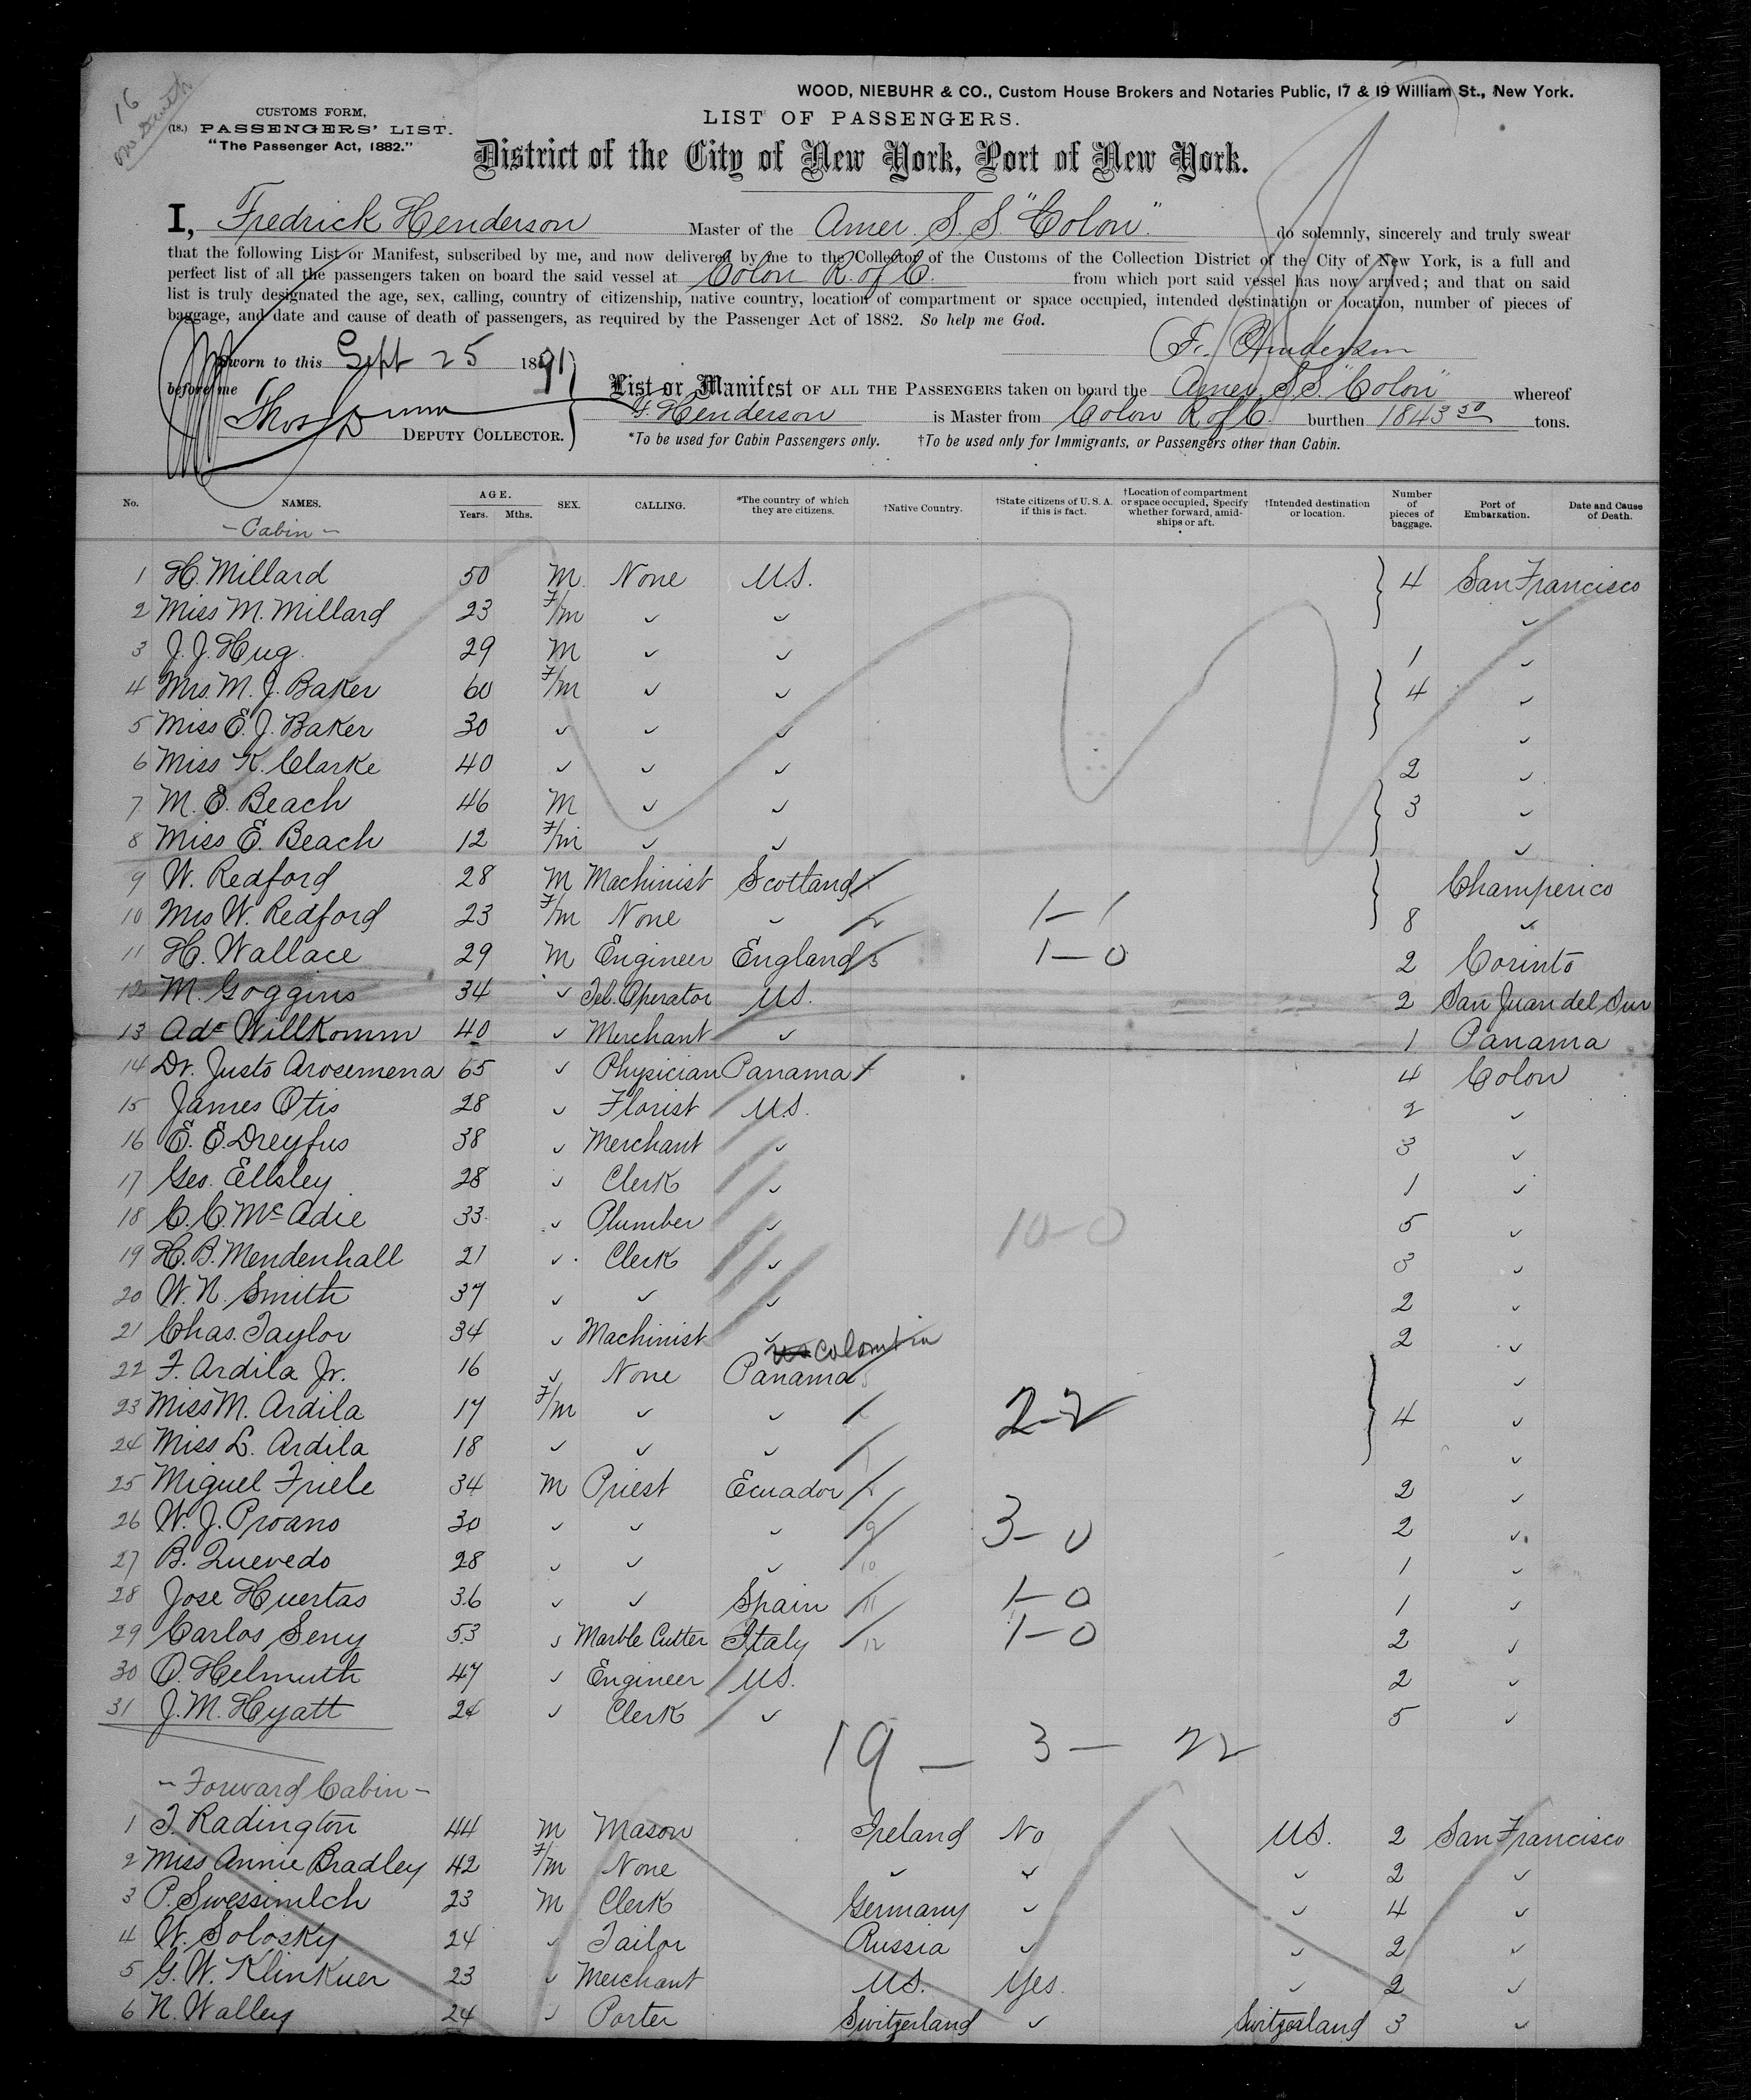 16
WOOD, NIEBUHR & CO., Custom House Brokers and Notaries Public, 17 & 19 William St., New York.
CUSTOMS FORM,
(18.) PASSENGERS' LIST.
"The Passenger Act, 1882."
LIST OF PASSENGERS.
District of the City of New York, Port of New York.
I, Fredrick Henderson Master of the Amer. S.S. "Colon" do solemnly, sincerely and truly swear
that the following List or Manifest, subscribed by me, and now delivered by me to the Collector of the Customs of the Collection District of the City of New York, is a full and
perfect list of all the passengers taken on board the said vessel at Colon R. of C. from which port said vessel has now arrived; and that on said
list is truly designated the age, sex, calling, country of citizenship, native country, location of compartment or space occupied, intended destination or location, number of pieces of
baggage, and date and cause of death of passengers, as required by the Passenger Act of 1882. So help me God.
F. Henderson
Sworn to this Sept 25 1891
before me
Thos Dunn
DEPUTY COLLECTOR.
List or Manifest OF ALL THE PASSENGERS taken on board the Amer. S.S. "Colon" whereof
F. Henderson is Master from Colon R. of C. burthen 1843 50 tons.
*To be used for Cabin Passengers only. †To be used only for Immigrants, or Passengers other than Cabin.
No. NAMES. AGE. Years. Mths. SEX. CALLING. *The country of which they are citizens. †Native Country. †State citizens of U.S.A. if this is fact. †Location of compartment or space occupied, Specify whether forward, amidships or aft. †Intended destination or location. Number of pieces of baggage. Port of Embarkation. Date and Cause of Death.
- Cabin -
1 H. Millard 50 M. None U.S. 4 San Francisco
2 Miss M. Millard 23 F/m ✓ ✓ ✓
3 J. J. Hug. 29 M ✓ ✓ 1 ✓
4 Mrs. M. J. Baker 60 F/m ✓ ✓ 4 ✓
5 Miss E. J. Baker 30 ✓ ✓ ✓ ✓
6 Miss K. Clarke 40 ✓ ✓ ✓ 2 ✓
7 M. E. Beach 46 M ✓ ✓ 3 ✓
8 Miss E. Beach 12 F/m ✓ ✓ ✓
9 W. Redford 28 M Machinist Scotland Champerico
10 Mrs W. Redford 23 F/m None ✓ 2 1-1 8 ✓
11 H. Wallace 29 M Engineer England 3 1-0 2 Corinto
12 M. Goggins 34 ✓ Tel. Operator U.S. 2 San Juan del Sur
13 Ade Willkomm 40 ✓ Merchant ✓ 1 Panama
14 Dr. Justo Arosemena 65 ✓ Physician Panama 4 Colon
15 James Otis 28 ✓ Florist U.S. 2 ✓
16 E. E. Dreyfus 38 ✓ Merchant ✓ 3 ✓
17 Geo. Ellsley 28 ✓ Clerk ✓ 1 ✓
18 C. C. McAdie 33 ✓ Plumber ✓ 10-0 5 ✓
19 H. B. Mendenhall 21 ✓ Clerk ✓ 3 ✓
20 W. N. Smith 37 ✓ ✓ ✓ 2 ✓
21 Chas. Taylor 34 ✓ Machinist ✓ 2 ✓
US Colombia
22 F. Ardila Jr. 16 ✓ None Panama ✓
23 Miss M. Ardila 17 F/m ✓ ✓ 2-2 4 ✓
24 Miss L. Ardila 18 ✓ ✓ ✓ ✓
25 Miguel Friele 34 M Priest Ecuador 2 ✓
26 W. J. Proano 30 ✓ ✓ ✓ 9 3-0 2 ✓
27 B. Quevedo 28 ✓ ✓ ✓ 10 1 ✓
28 Jose Huertas 36 ✓ ✓ Spain 11 1-0 1 ✓
29 Carlos Seny 53 ✓ Marble Cutter Italy 12 1-0 2 ✓
30 O. Helmuth 47 ✓ Engineer U.S. 2 ✓
31 J. M. Hyatt 24 ✓ Clerk ✓ 5 ✓
19 - 3 - 22
- Forward Cabin -
1 T. Radington 44 M Mason Ireland No U.S. 2 San Francisco
2 Miss Annie Bradley 42 F/m None ✓ ✓ ✓ 2 ✓
3 P. Swessimlch 23 M Clerk Germany ✓ ✓ 4 ✓
4 W. Solosky 24 ✓ Tailor Russia ✓ ✓ 2 ✓
5 G. W. Klinkuer 23 ✓ Merchant U.S. Yes. ✓ 2 ✓
6 N. Walley 24 ✓ Porter Switzerland ✓ Switzerland 3 ✓